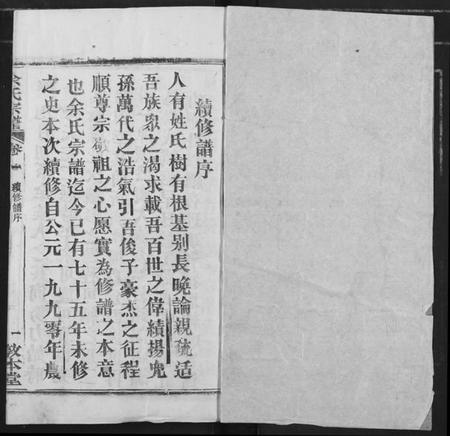 續修譜序
人有姓氏樹有根基别長晚論親疏适
吾族衆之渴求載吾百世之偉績揚
孫萬代之浩氣引吾俊子豪杰之征程
順尊宗敬祖之心愿實為修譜之本意
也余氏宗譜迄今已有七十五年未修
之史本次續修自公元一九九零年農
余氏宗譜
卷一
續修譜序
一
敦本堂